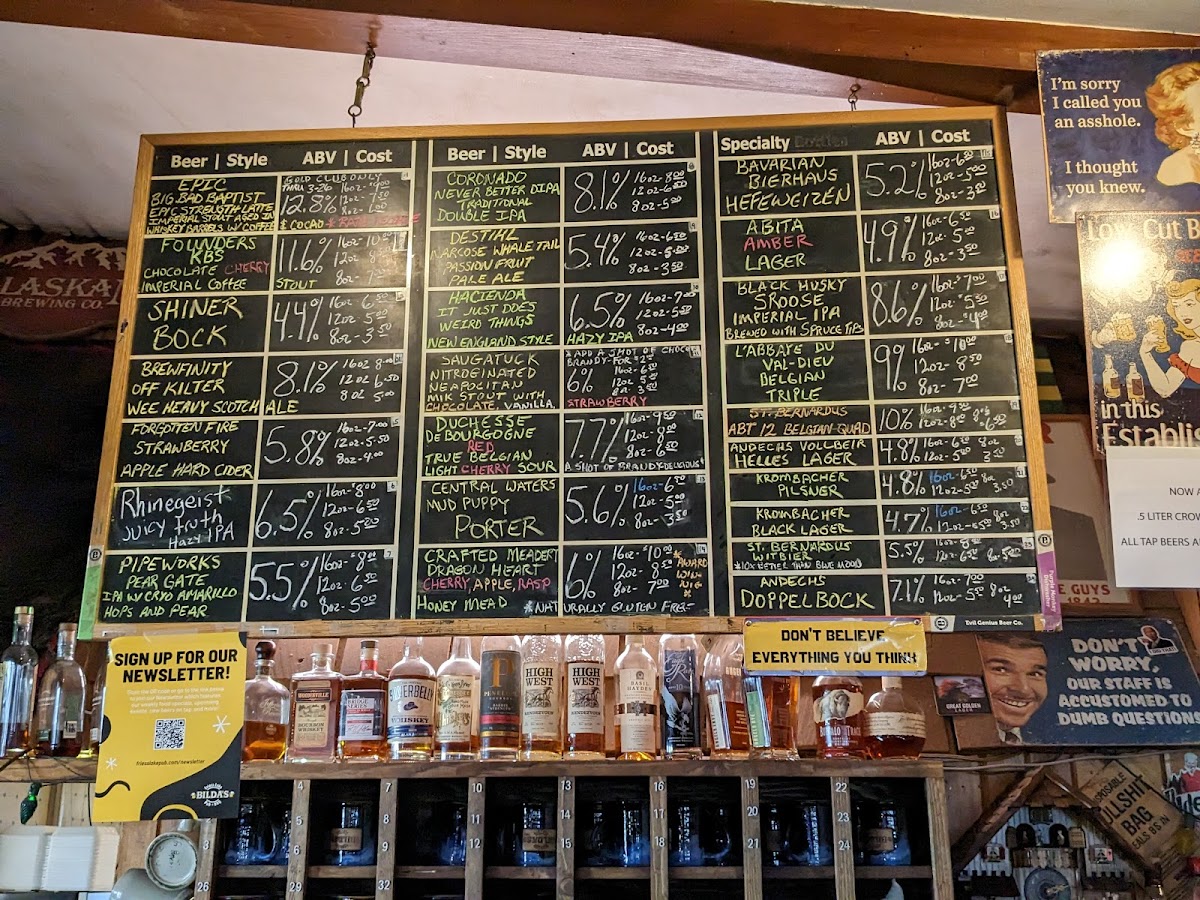 Beer | Style ABV | Cost
EPIC
BIG BAD BAPTIST
IMPERIAL STOUT AGED IN
WHISKEY BARRELS W/ COFFEE
GOLD CLUB ONLY
THRU 3-26 16oz-9.00
12.8% 12oz-7.50
8oz-6.00
& COCAO
FOUNDERS
KBS
CHOCOLATE CHERRY
IMPERIAL COFFEE STOUT
11.6%
SHINER
BOCK
4.4% 16oz-6.50
12oz-5.00
8oz-3.50
BREWFINITY
OFF KILTER
WEE HEAVY SCOTCH ALE
8.1% 16oz 8.00
12oz 6.50
8oz 5.00
FORGOTTEN FIRE
STRAWBERRY
APPLE HARD CIDER
5.8% 16oz-7.00
12oz-5.50
8oz-4.00
Rhinegeist
Juicy Truth
Hazy IPA
6.5% 16oz-8.00
12oz-6.50
8oz-5.00
PIPEWORKS
PEAR GATE
IPA W/ CRYO AMARILLO
HOPS AND PEAR
5.5% 16oz-8.00
12oz-6.50
8oz-5.00
Beer | Style ABV | Cost
CORONADO
NEVER BETTER DIPA
TRADITIONAL
DOUBLE IPA
8.1% 16oz-8.00
12oz-6.50
8oz-5.00
DESTIHL
NARCOSE WHALE TAIL
PASSION FRUIT
PALE ALE
5.4% 16oz-6.50
12oz-5.00
8oz-3.50
HACIENDA
IT JUST DOES
WEIRD THINGS
NEW ENGLAND STYLE HAZY IPA
6.5% 16oz-7.00
12oz-5.50
8oz-4.00
SAUGATUCK
NITROGINATED
NEAPOLITAN
MIK STOUT WITH
CHOCOLATE, VANILLA, STRAWBERRY
* ADD A SHOT OF CHOCO
BRANDY FOR $2.50
6% 16oz-6.50
12oz 5.00
8oz 3.50
DUCHESSE
DE BOURGOGNE
RED
TRUE BELGIAN
LIGHT CHERRY SOUR
7.7% 16oz-9.50
12oz-8.00
8oz-6.50
A SHOT OF BRANDY=DELICIOUS
CENTRAL WATERS
MUD PUPPY
PORTER
5.6% 16oz-6.50
12oz-5.00
8oz-3.50
CRAFTED MEADERY
DRAGON HEART
CHERRY, APPLE, RASP
HONEY MEAD
6% 16oz-10.00
12oz-8.50
8oz-7.00
*AWARD
WINNING*
*NATURALLY GLUTEN FREE
Specialty ABV | Cost
BAVARIAN
BIERHAUS
HEFEWEIZEN
5.2% 16oz-6.50
12oz-5.00
8oz-3.50
ABITA
AMBER
LAGER
4.9% 16oz-6.50
12oz-5.00
8oz-3.50
BLACK HUSKY
SROOSE
IMPERIAL IPA
BREWED WITH SPRUCE TIPS
8.6% 16oz-7.00
12oz-5.50
8oz-4.00
L'ABBAYE DU
VAL-DIEU
BELGIAN
TRIPLE
9% 16oz-10.00
12oz-8.50
8oz-7.00
ST. BERNARDUS
ABT 12 BELGIAN QUAD
10% 16oz-9.50
ANDECHS VOLLBEIR
HELLES LAGER
4.8% 16oz-6.50 8oz
12oz-5.00 3.50
KROMBACHER
PILSNER
4.8% 16oz-6.50 8oz
12oz-5.00 3.50
KROMBACHER
BLACK LAGER
4.7% 16oz-6.50 8oz
12oz-5.00 3.50
ST. BERNARDUS
WITBIER
*10X BETTER THAN BLUE MOON
5.5%
ANDECHS
DOPPELBOCK
7.1% 16oz-7.00 8oz
12oz-5.50 4.00
Evil Genius Beer Co.
I'm sorry
I called you
an asshole.
I thought
you knew.
Low Cut B
in this
Establis
NOW A
.5 LITER CROW
ALL TAP BEERS A
E GUYS
LASKAN
BREWING CO.
SIGN UP FOR OUR
NEWSLETTER!
BILDA'S
DON'T BELIEVE
EVERYTHING YOU THINK
DON'T
WORRY,
OUR STAFF IS
ACCUSTOMED TO
DUMB QUESTION
GREAT GOLDEN
HIGH
WEST
HIGH
WEST
BASIL
HAYDEN
WHISKEY
BUFFALO TRACE
DISPOSABLE
BULLSHIT
BAG
4
5
7
8
9
10
11
12
13
14
15
16
17
18
19
20
21
22
23
24
26
29
32